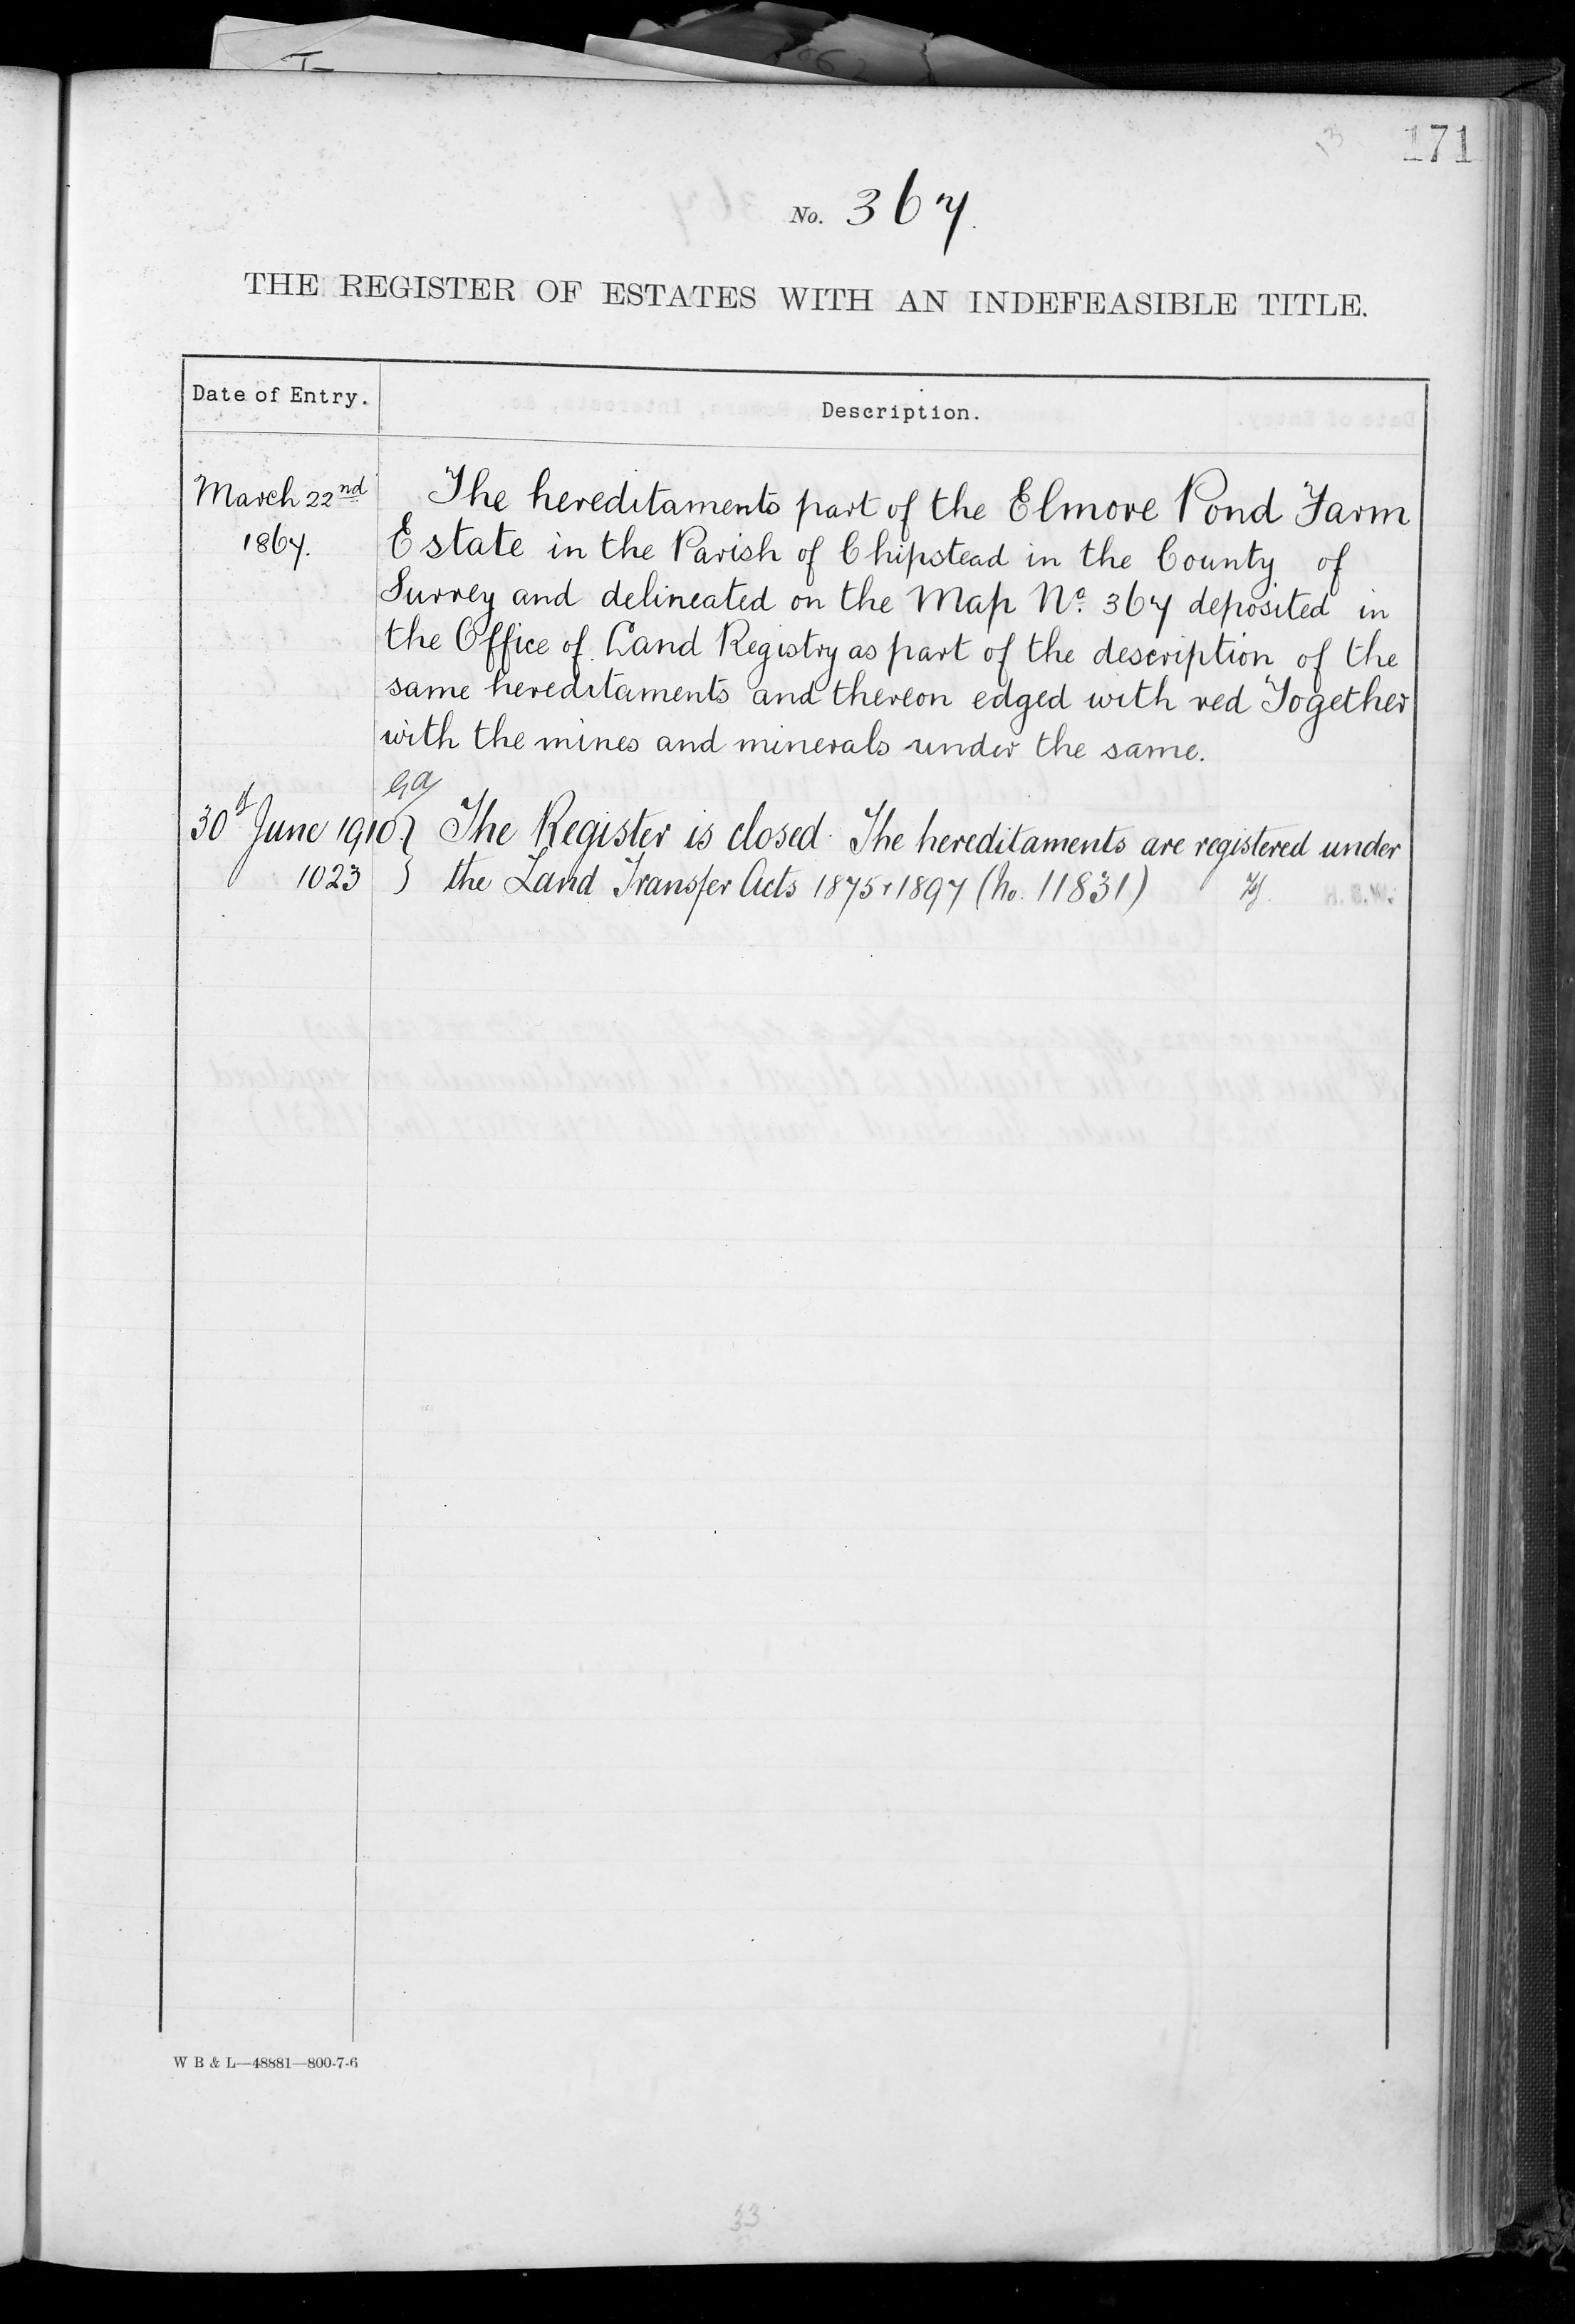 171
No. 367.
THE REGISTER OF ESTATES WITH AN INDEFEASIBLE TITLE.
Date of Entry.
Description.
March 22nd
1867.
The hereditaments part of the Elmore Pond Farm
Estate in the Parish of Chipstead in the County of
Surrey and delineated on the Map No. 367 deposited in
the Office of Land Registry as part of the description of the
same hereditaments and thereon edged with red Together
with the mines and minerals under the same.
30th June 1910 } The Register is closed. The hereditaments are registered under
1023 } the Land Transfer Acts 1875 & 1897 (No. 11831)
W B & L—48881—800-7-6
33